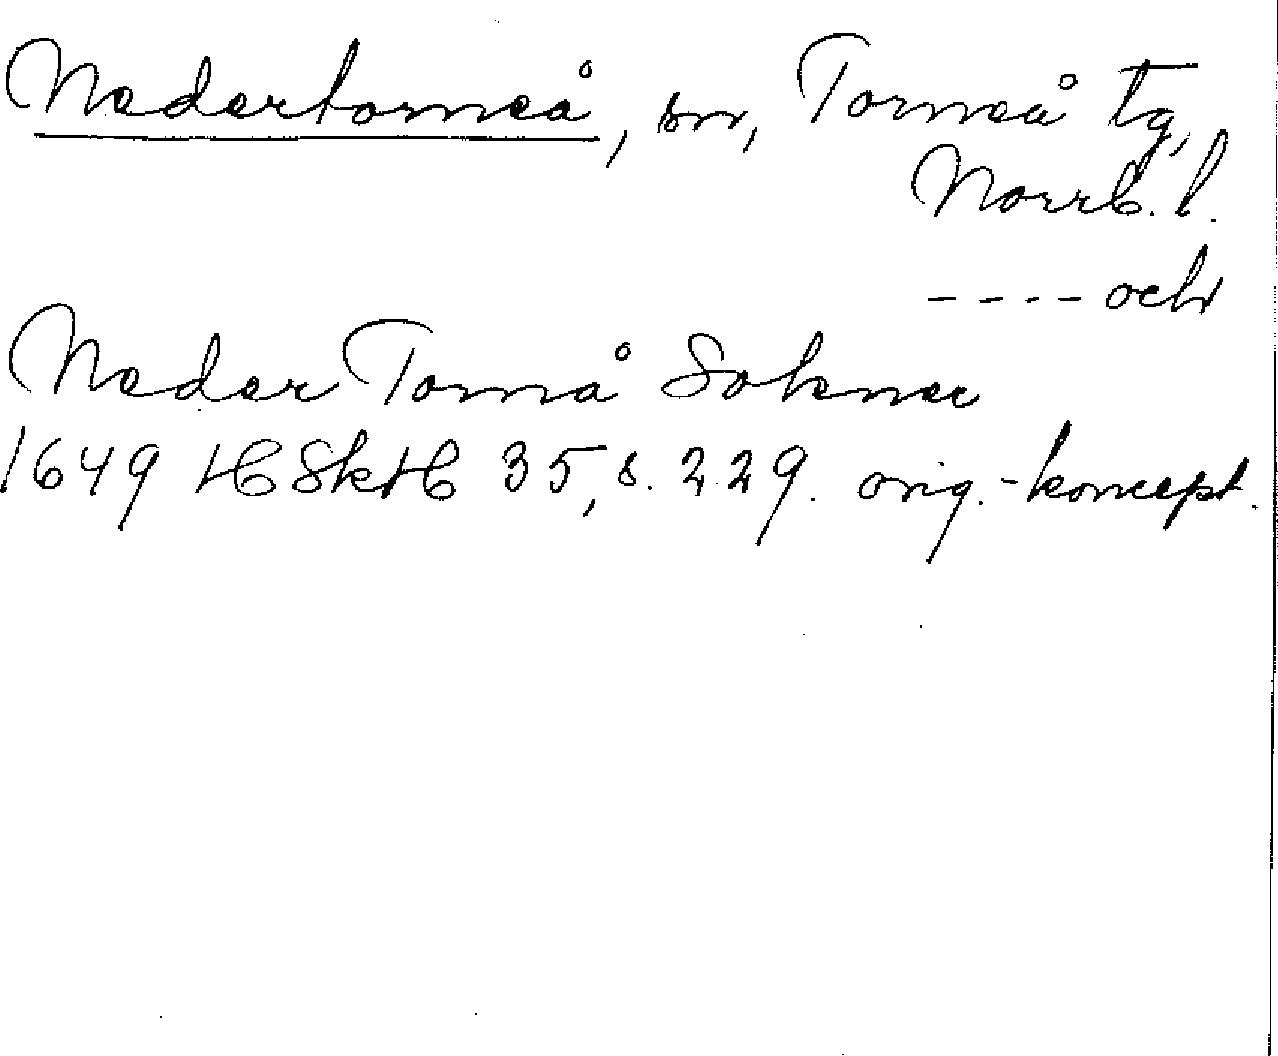 Nedertorneå, sn, Torneå tg,
Norrb. l.
---- och
Neder Tornå Sokner
1649 HSkH 35, s. 229. orig.-koncept.